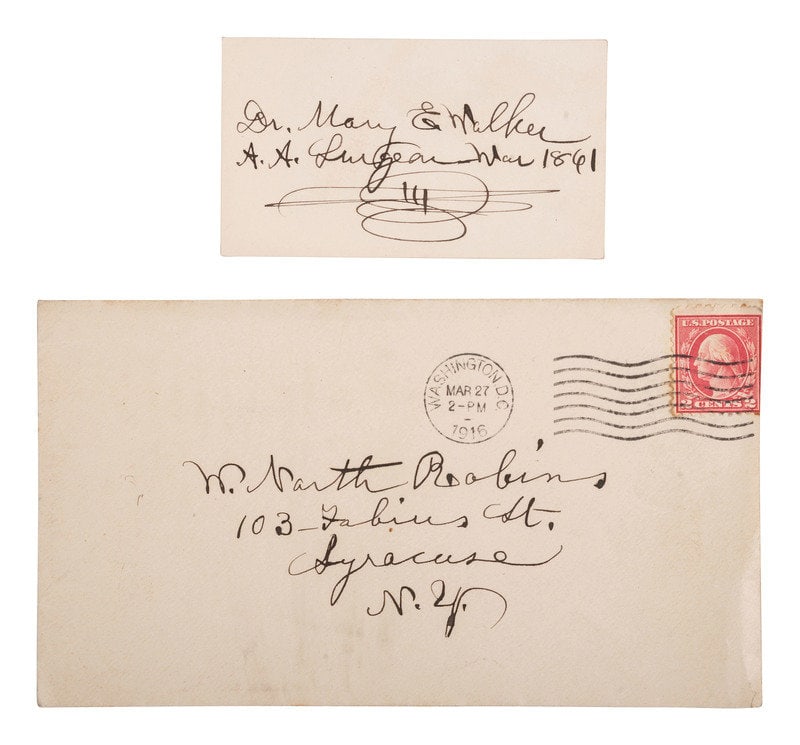 Dr. Mary E Walker
A. A. Surgeon War 1861
U.S. POSTAGE
2 CENTS 2
WASHINGTON D.C.
MAR 27
2-PM
1916
W. North Robins
103-Fabius St.
Syracuse
N.Y.